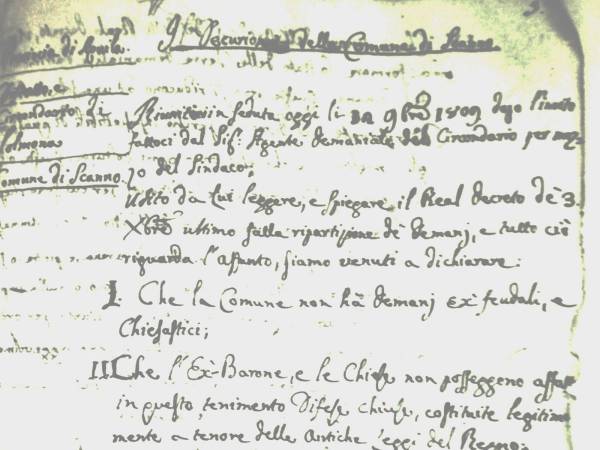 Gl. Decurioni della Comune di Scanno.
Provincia di Aquila.
Distretto, e
Circondario di
Solmona
Comune di Scanno.
Riunitici in seduta oggi li 12 9bre 1809 dopo l'invito
fattoci dal Sig. Agente demaniale del Circondario per mez-
zo del Sindaco;
Udito da lui leggere, e spiegare il Real decreto de' 3
Xbre ultimo sulla ripartizione de' demanj, e tutto ciò
riguarda l'assunto, siamo venuti a dichiarare:
I. Che la Comune non hà demanj ex feudali, e
Chiesastici;
II. Che l'Ex-Barone, e le Chiese non posseggono affatto
in questo tenimento Difese chiuse, costituite legitima-
mente a tenore delle antiche leggi del Regno;